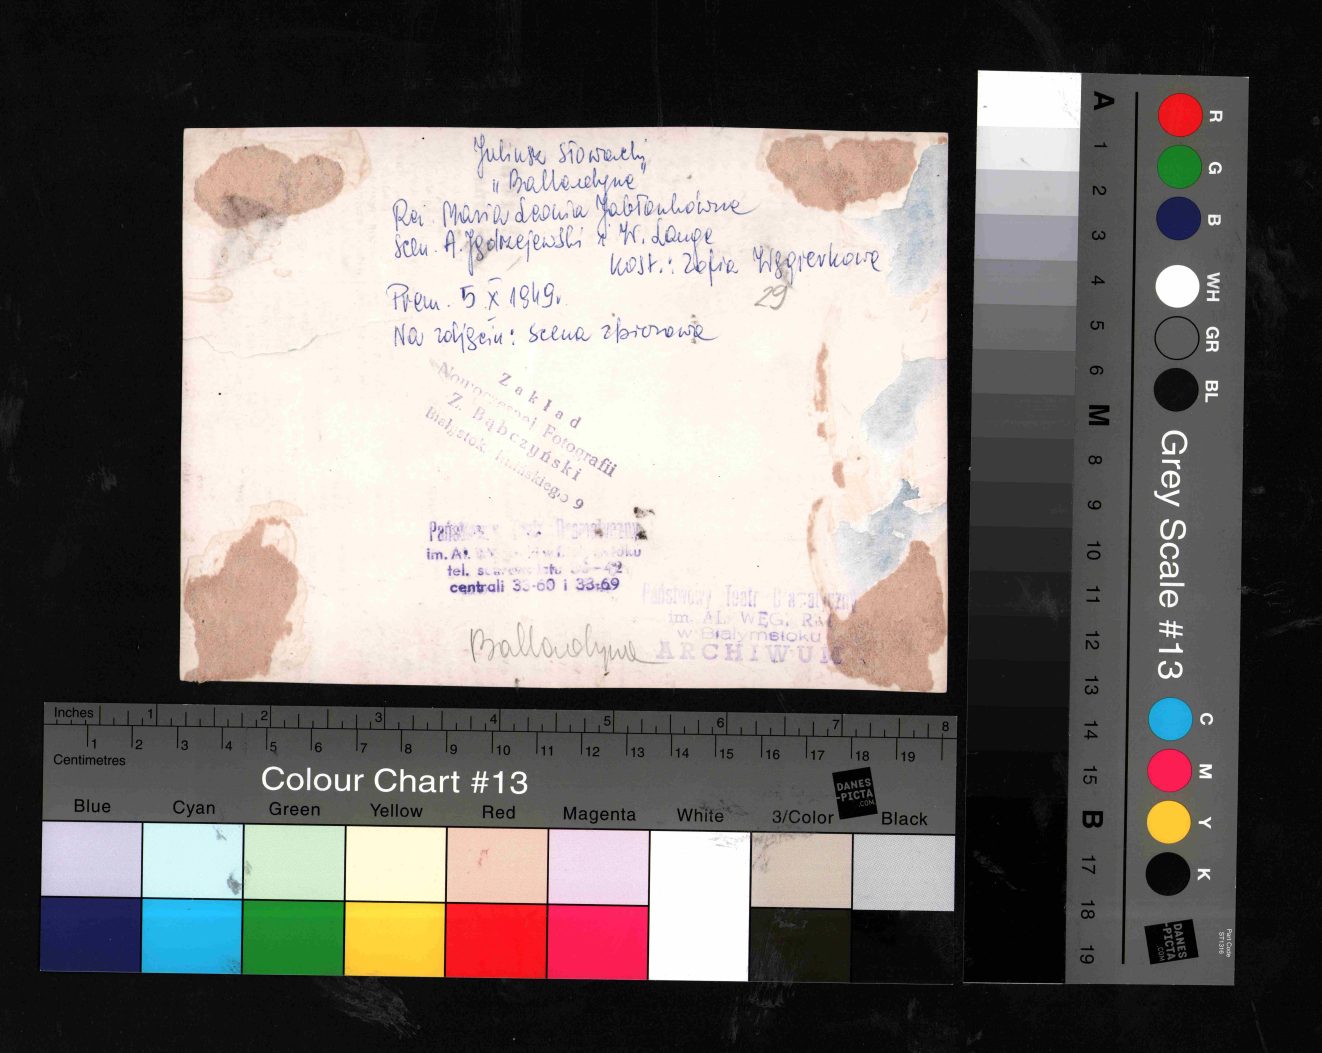 Juliusz Słowacki
"Balladyna"
Reż. Maria Leonia Jabłonkówna
Scen. A. Jędrzejewski i W. Lange
Kost.: Zofia Węgierkowa
29
Prem. 5 X 1949.
Na zdjęciu: scena zbiorowa
Zakład
Nowoczesnej Fotografii
Z. Bąbczyński
Białystok, 9
Państwowy Teatr Dramatyczny
im. Al.
tel.
centrali 33-60 i 33-69
Państwowy Teatr Dramatyczny
im. AL. WĘG.
w Białymstoku
ARCHIWUM
Balladyna
Inches 1 2 3 4 5 6 7 8
1 2 3 4 5 6 7 8 9 10 11 12 13 14 15 16 17 18 19
Centimetres
Colour Chart #13
DANES
-PICTA
.COM
Blue Cyan Green Yellow Red Magenta White 3/Color Black
A 1 2 3 4 5 6 M 8 9 10 11 12 13 14 15 B 17 18 19
R G B WH GR BL
Grey Scale #13
C M Y K
DANES
-PICTA
.COM
Part Code
ST1316